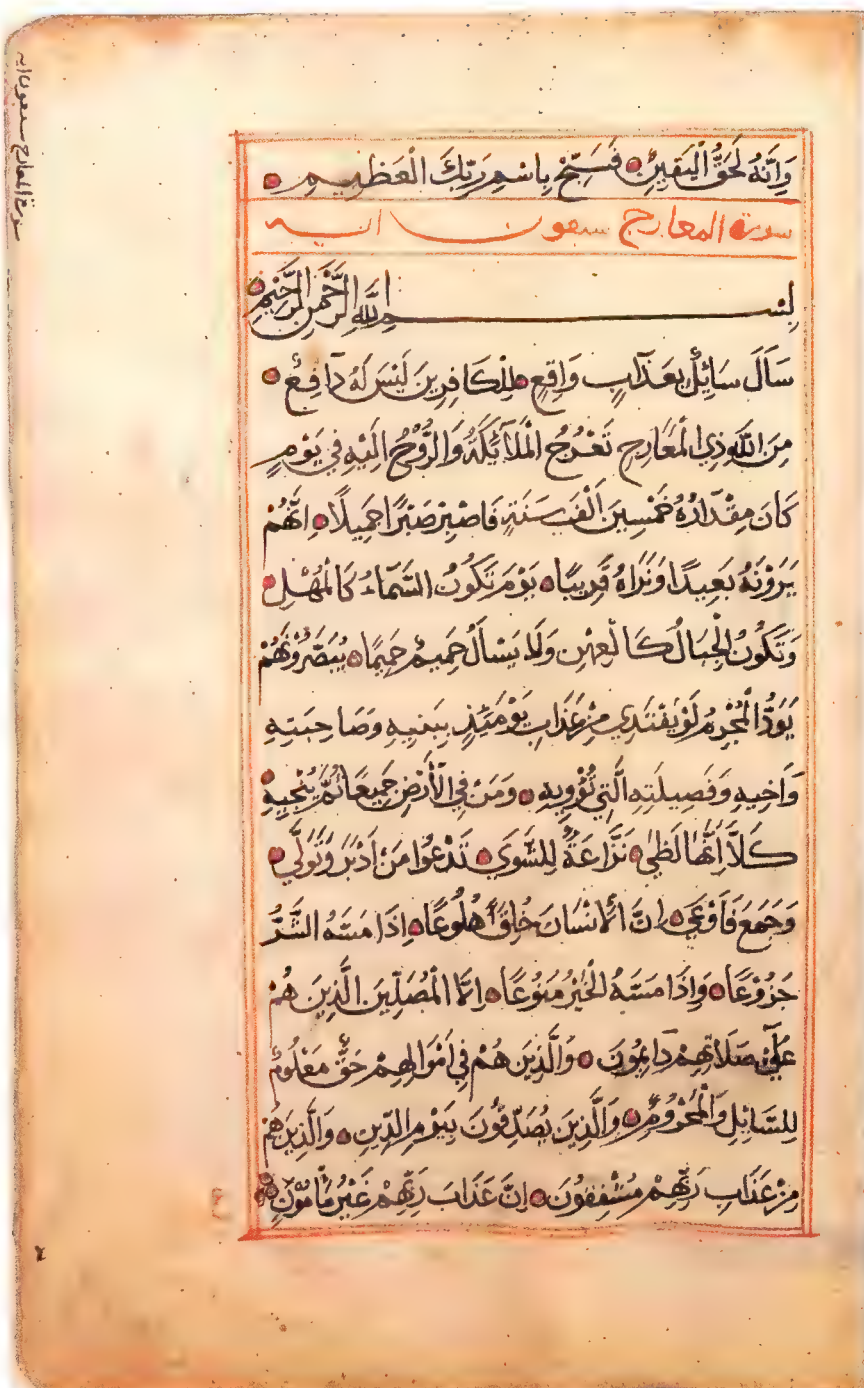 وَاِنَّهُ لَحَقُّ الْيَقِيْنِ فَسَبِّحْ بِاسْمِ رَبِّكَ الْعَظِيْمِ
سورة المعارج سبعون اية
بِسْمِ اللَّهِ الرَّحْمٰنِ الرَّحِيْمِ
سَاَلَ سَايِٕلٌ بِعَذَابٍ وَاقِعٍ لِلْكَافِرِينَ لَيْسَ لَهُ دَافِعٌ
مِنَ اللَّهِ ذِي الْمَعَارِجِ تَعْرُجُ الْمَلَآئِكَةُ وَالرُّوْحُ اِلَيْهِ فِي يَوْمٍ
كَانَ مِقْدَارُهُ خَمْسِينَ اَلْفَ سَنَةٍ فَاصْبِرْ صَبْرًا جَمِيْلًا اِنَّهُمْ
يَرَوْنَهُ بَعِيدًا وَنَرَاهُ قَرِيبًا يَوْمَ تَكُونُ السَّمَآءُ كَالْمُهْلِ
وَتَكُوْنُ الْجِبَالُ كَالْعِهْنِ وَلَا يَسْأَلُ حَمِيمٌ حَمِيمًا يُبَصَّرُوْنَهُمْ
يَوَدُّ الْمُجْرِمُ لَوْ يَفْتَدِي مِنْ عَذَابِ يَوْمَئِذٍ بِبَنِيهِ وَصَاحِبَتِهِ
وَاَخِيهِ وَفَصِيلَتِهِ الَّتِي تُؤْوِيهِ وَمَنْ فِي الْأَرْضِ جَمِيعًا ثُمَّ يُنْجِيهِ
كَلَّا اِنَّهَا لَظٰى نَزَّاعَةً لِلشَّوَى تَدْعُوا مَنْ اَدْبَرَ وَتَوَلَّى
وَجَمَعَ فَاَوْعَى اِنَّ الْاِنْسَانَ خُلِقَ هَلُوعًا اِذَا مَسَّهُ الشَّرُّ
جَزُوْعًا وَاِذَا مَسَّهُ الْخَيْرُ مَنُوْعًا اِلَّا الْمُصَلِّيْنَ الَّذِينَ هُمْ
عَلَىٰ صَلَاتِهِمْ دَايِمُونَ وَالَّذِينَ هُمْ فِي اَمْوَالِهِمْ حَقٌّ مَعْلُومٌ
لِلسَّايِلِ وَالْمَحْرُومِ وَالَّذِينَ يُصَدِّقُوْنَ بِيَوْمِ الدِّيْنِ وَالَّذِينَ هُمْ
مِنْ عَذَابِ رَبِّهِمْ مُشْفِقُوْنَ اِنَّ عَذَابَ رَبِّهِمْ غَيْرُ مَأْمُوْنٍ
ع
سورة المعارج سبعون اية